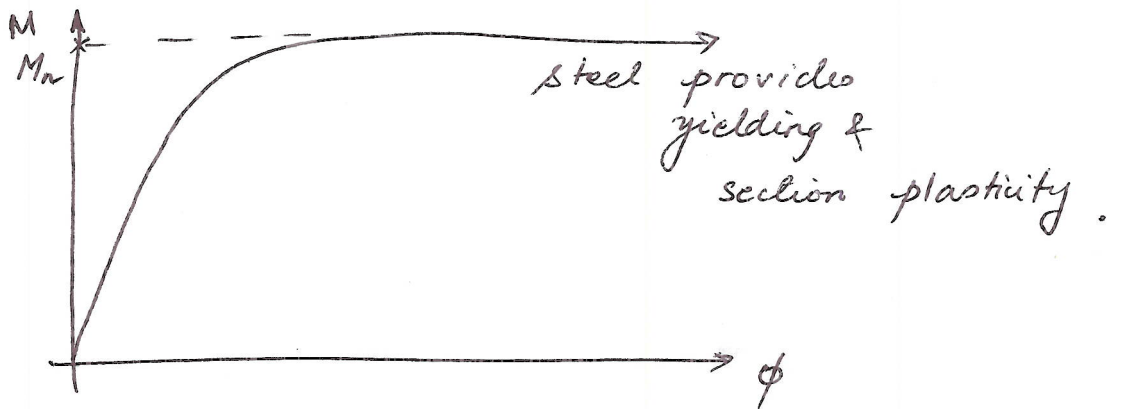 M
Mn
steel provides
yielding &
section plasticity.
ϕ